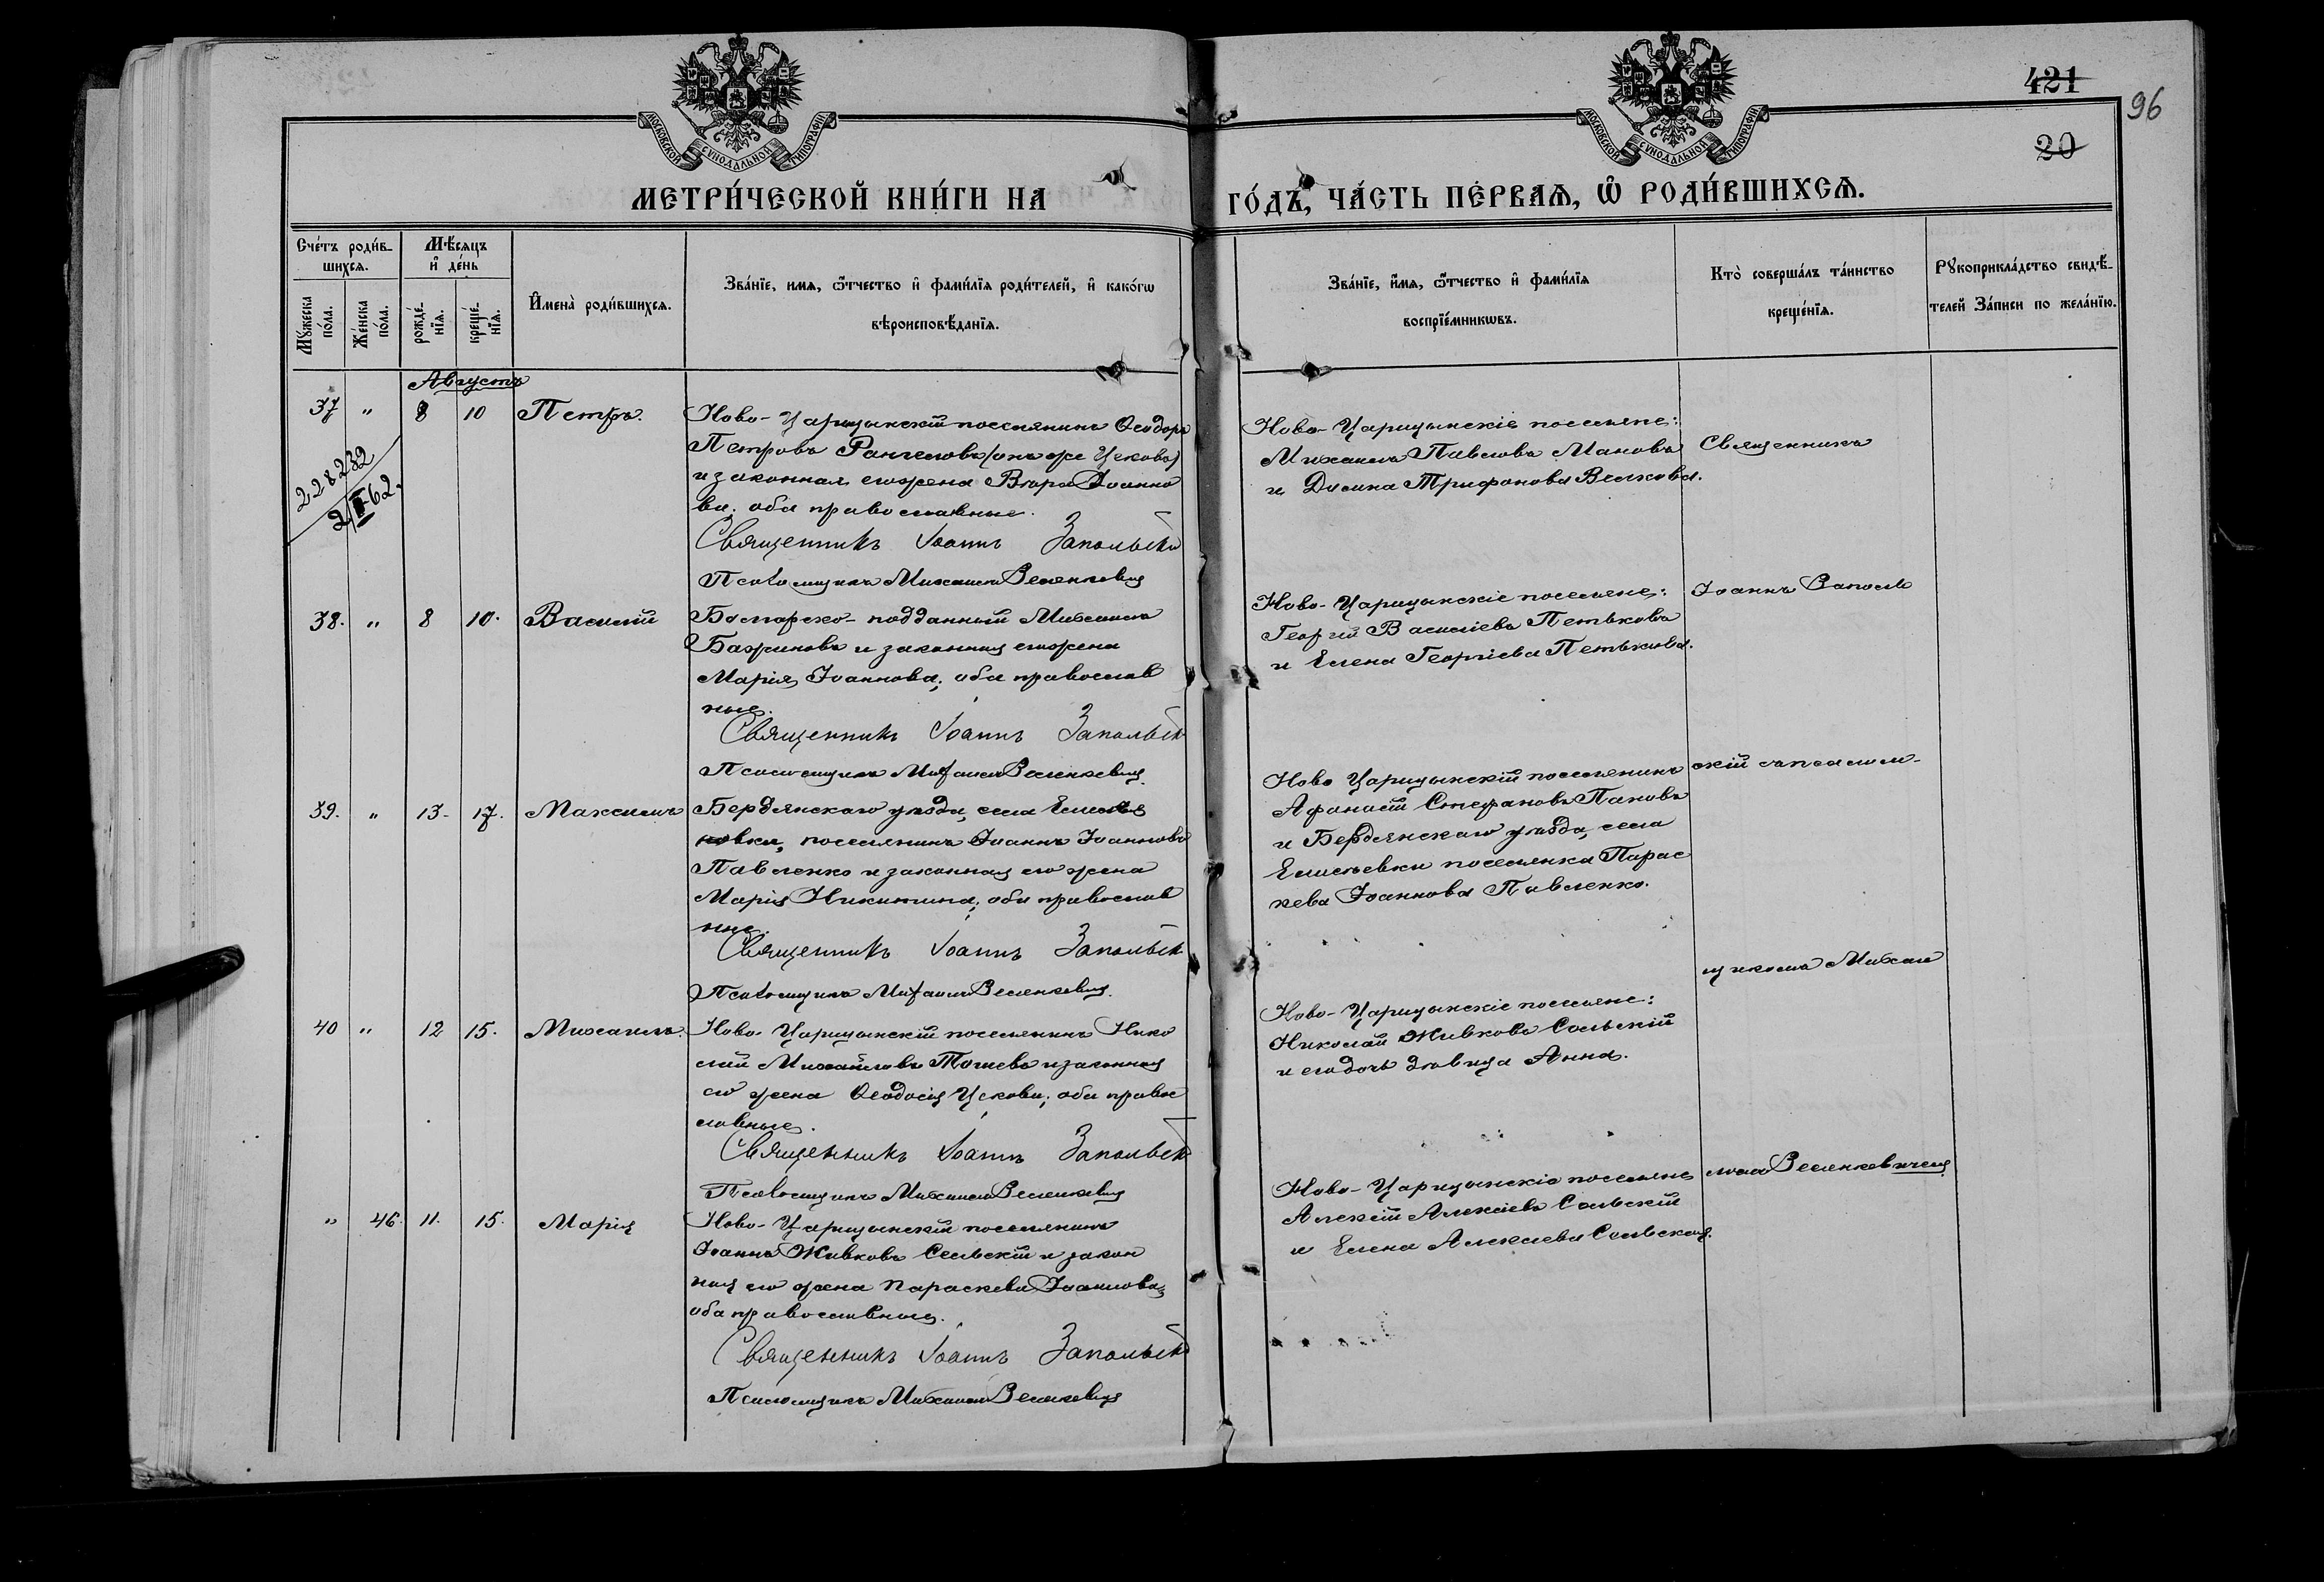 МОСКОВСКОЙ СѴНОДАЛЬНОЙ ТИПОГРАФІИ
МОСКОВСКОЙ СѴНОДАЛЬНОЙ ТИПОГРАФІИ
421
96
20
МЕТРИ́ЧЕСКОЙ КНИ́ГИ НА
ГО́ДЪ, ЧА́СТЬ ПЕ́РВАѦ, Ѡ҆ РОДИ́ВШИХСѦ.
Сче́тъ роди́в-
шихсѧ.
Мꙋ́жеска по́ла.
Же́нска по́ла.
Мѣ́сяцъ
и҆ де́нь
рожде́-
нїѧ.
креще́-
нїѧ.
И҆мена̀ роди́вшихсѧ.
Зва́нїе, имѧ, ѻ҆́тчество и҆ фами́лїѧ роди́телей, и҆ како́гѡ
вѣроисповѣ́данїѧ.
Зва́нїе, и҆́мѧ, ѻ҆́тчество и҆ фами́лїѧ
воспрїе́мникѡвъ.
Кто̀ соверша́лъ та́инство
креще́нїѧ.
Рꙋкоприкла́дство свидѣ́-
телей За́писи по жела́нїю.
Августъ
37 " 8 10 Петръ.
228232
2/II-62.
Ново-Царицынскій поселянинъ Ѳеодоръ
Петровъ Рангеловъ (онъ же Цековъ)
и законная его жена Вѣра Іоанно
ва; оба православные.
Священникъ Іоаннъ Запольскі
Псаломщикъ Михаилъ Веленкевич
Ново-Царицынскіе поселяне:
Михаилъ Павловъ Мановъ
и Домна Трифонова Велкова.
Священникъ
38. " 8 10. Василій
Болгарско-подданный Михаилъ
Бажиновъ и законная его жена
Марія Іоаннова; оба православ
ные.
Священникъ Іоаннъ Запольск
Псаломщикъ Михаилъ Веленкевич
Ново-Царицынскіе поселяне:
Георгій Василіевъ Петьковъ
и Елена Георгіева Петькова.
Іоаннъ Заполь
39. " 13- 17. Максимъ
Бердянскаго уѣзда, села
новки, поселянинъ Іоаннъ Іоанновъ
Павленко и законная его жена
Марія Никитина; оба православ
ные.
Священникъ Іоаннъ Запольск
Псаломщикъ Михаилъ Веленкевич.
Ново Царицынскій поселянинъ
Афанасій Стефановъ Пановъ
и Бердянскаго уѣзда, села
поселянка Парас
кева Іоаннова Павленко.
скій съ псалом-
40 " 12 15. Михаилъ.
Ново-Царицынскій поселянинъ Нико
лай Михайловъ Тошевъ и законная
его жена Ѳеодосія Цекова; оба правос
лавные.
Священникъ Іоаннъ Запольск
Псаломщикъ Михаилъ Веленкевич
Ново-Царицынскіе поселяне:
Николай Живковъ Сельскій
и его дочь дѣвица Анна.
щикомъ Михаи
" 46. 11. 15. Марія
Ново-Царицынскій поселянинъ
Іоаннъ Живковъ Сельскій и закон
ная его жена Параскева Іоаннова,
оба православные.
Священникъ Іоаннъ Запольск
Псаломщикъ Михаилъ Веленкевич
Ново-Царицынскіе поселяне
Алексій Алексіевъ Сельскій
и Елена Алексіева Сельская.
ломъ Веленкевичемъ